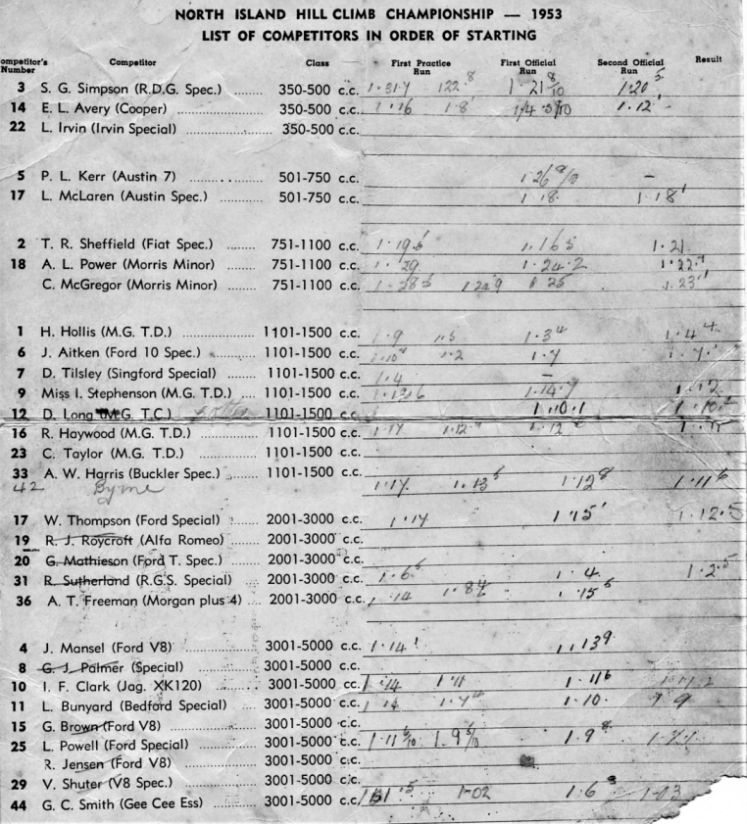 NORTH ISLAND HILL CLIMB CHAMPIONSHIP — 1953
LIST OF COMPETITORS IN ORDER OF STARTING
ompetitor's Number Competitor Class First Practice Run First Official Run Second Official Run Result
3 S. G. Simpson (R.D.G. Spec.) ........ 350-500 c.c. 1·31·7 122·8 1·21 8/10 1·20 5
14 E. L. Avery (Cooper) ........ 350-500 c.c. 1·16 1·8 1·12
22 L. Irvin (Irvin Special) ........ 350-500 c.c.
5 P. L. Kerr (Austin 7) ........ 501-750 c.c. –
17 L. McLaren (Austin Spec.) ........ 501-750 c.c. 1·18 1·18
2 T. R. Sheffield (Fiat Spec.) ........ 751-1100 c.c. 1·16 5 1·21
18 A. L. Power (Morris Minor) ........ 751-1100 c.c. 1·29 1·24·2 1·22
C. McGregor (Morris Minor) ........ 751-1100 c.c. 1·25 1·23
1 H. Hollis (M.G. T.D.) ........ 1101-1500 c.c. 1·9 1·5 1·3 4 1·4 4
6 J. Aitken (Ford 10 Spec.) ........ 1101-1500 c.c. 1·2 1·7
7 D. Tilsley (Singford Special) ........ 1101-1500 c.c. 1·4 –
9 Miss I. Stephenson (M.G. T.D.) .... 1101-1500 c.c. 1·14·7 1·12
12 D. Long (M.G. T.C.) 1101-1500 c.c. 1·10·1
16 R. Haywood (M.G. T.D.) ........ 1101-1500 c.c. 1·17 1·12
23 C. Taylor (M.G. T.D.) ........ 1101-1500 c.c.
33 A. W. Harris (Buckler Spec.) ........ 1101-1500 c.c.
42 Byrne 1·17 1·13 5 1·12 8 1·11 6
17 W. Thompson (Ford Special) ........ 2001-3000 c.c. 1·14 1·15 1·12·5
19 R. J. Roycroft (Alfa Romeo) ........ 2001-3000 c.c.
20 G. Mathieson (Ford T. Spec.) ........ 2001-3000 c.c.
31 R. Sutherland (R.G.S. Special) ........ 2001-3000 c.c. 1·6 1·4 1·2·5
36 A. T. Freeman (Morgan plus 4) .... 2001-3000 c.c. 1·14 1·15 6
4 J. Mansel (Ford V8) ........ 3001-5000 c.c. 1·14 1·13 9
8 G. J. Palmer (Special) ........ 3001-5000 c.c.
10 I. F. Clark (Jag. XK120) ........ 3001-5000 cc. 1·14 1·11 1·11 6
11 L. Bunyard (Bedford Special) ........ 3001-5000 c.c. 1·14 1·10
15 G. Brown (Ford V8) ........ 3001-5000 c.c.
25 L. Powell (Ford Special) ........ 3001-5000 c.c. 1·9 8
R. Jensen (Ford V8) ........ 3001-5000 c.c.
29 V. Shuter (V8 Spec.) ........ 3001-5000 c.c.
44 G. C. Smith (Gee Cee Ess) ........ 3001-5000 c.c. 1·02 1·6 1·13